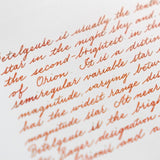 Betelgeuse is usually the tenth
star in the night sky and
the second-brightest in the
of Orion. It is a distin
semiregular variable star
magnitude, varying between
has the widest range dis
magnitude star. At near
Betelgeuse is the brig
Bayer designation